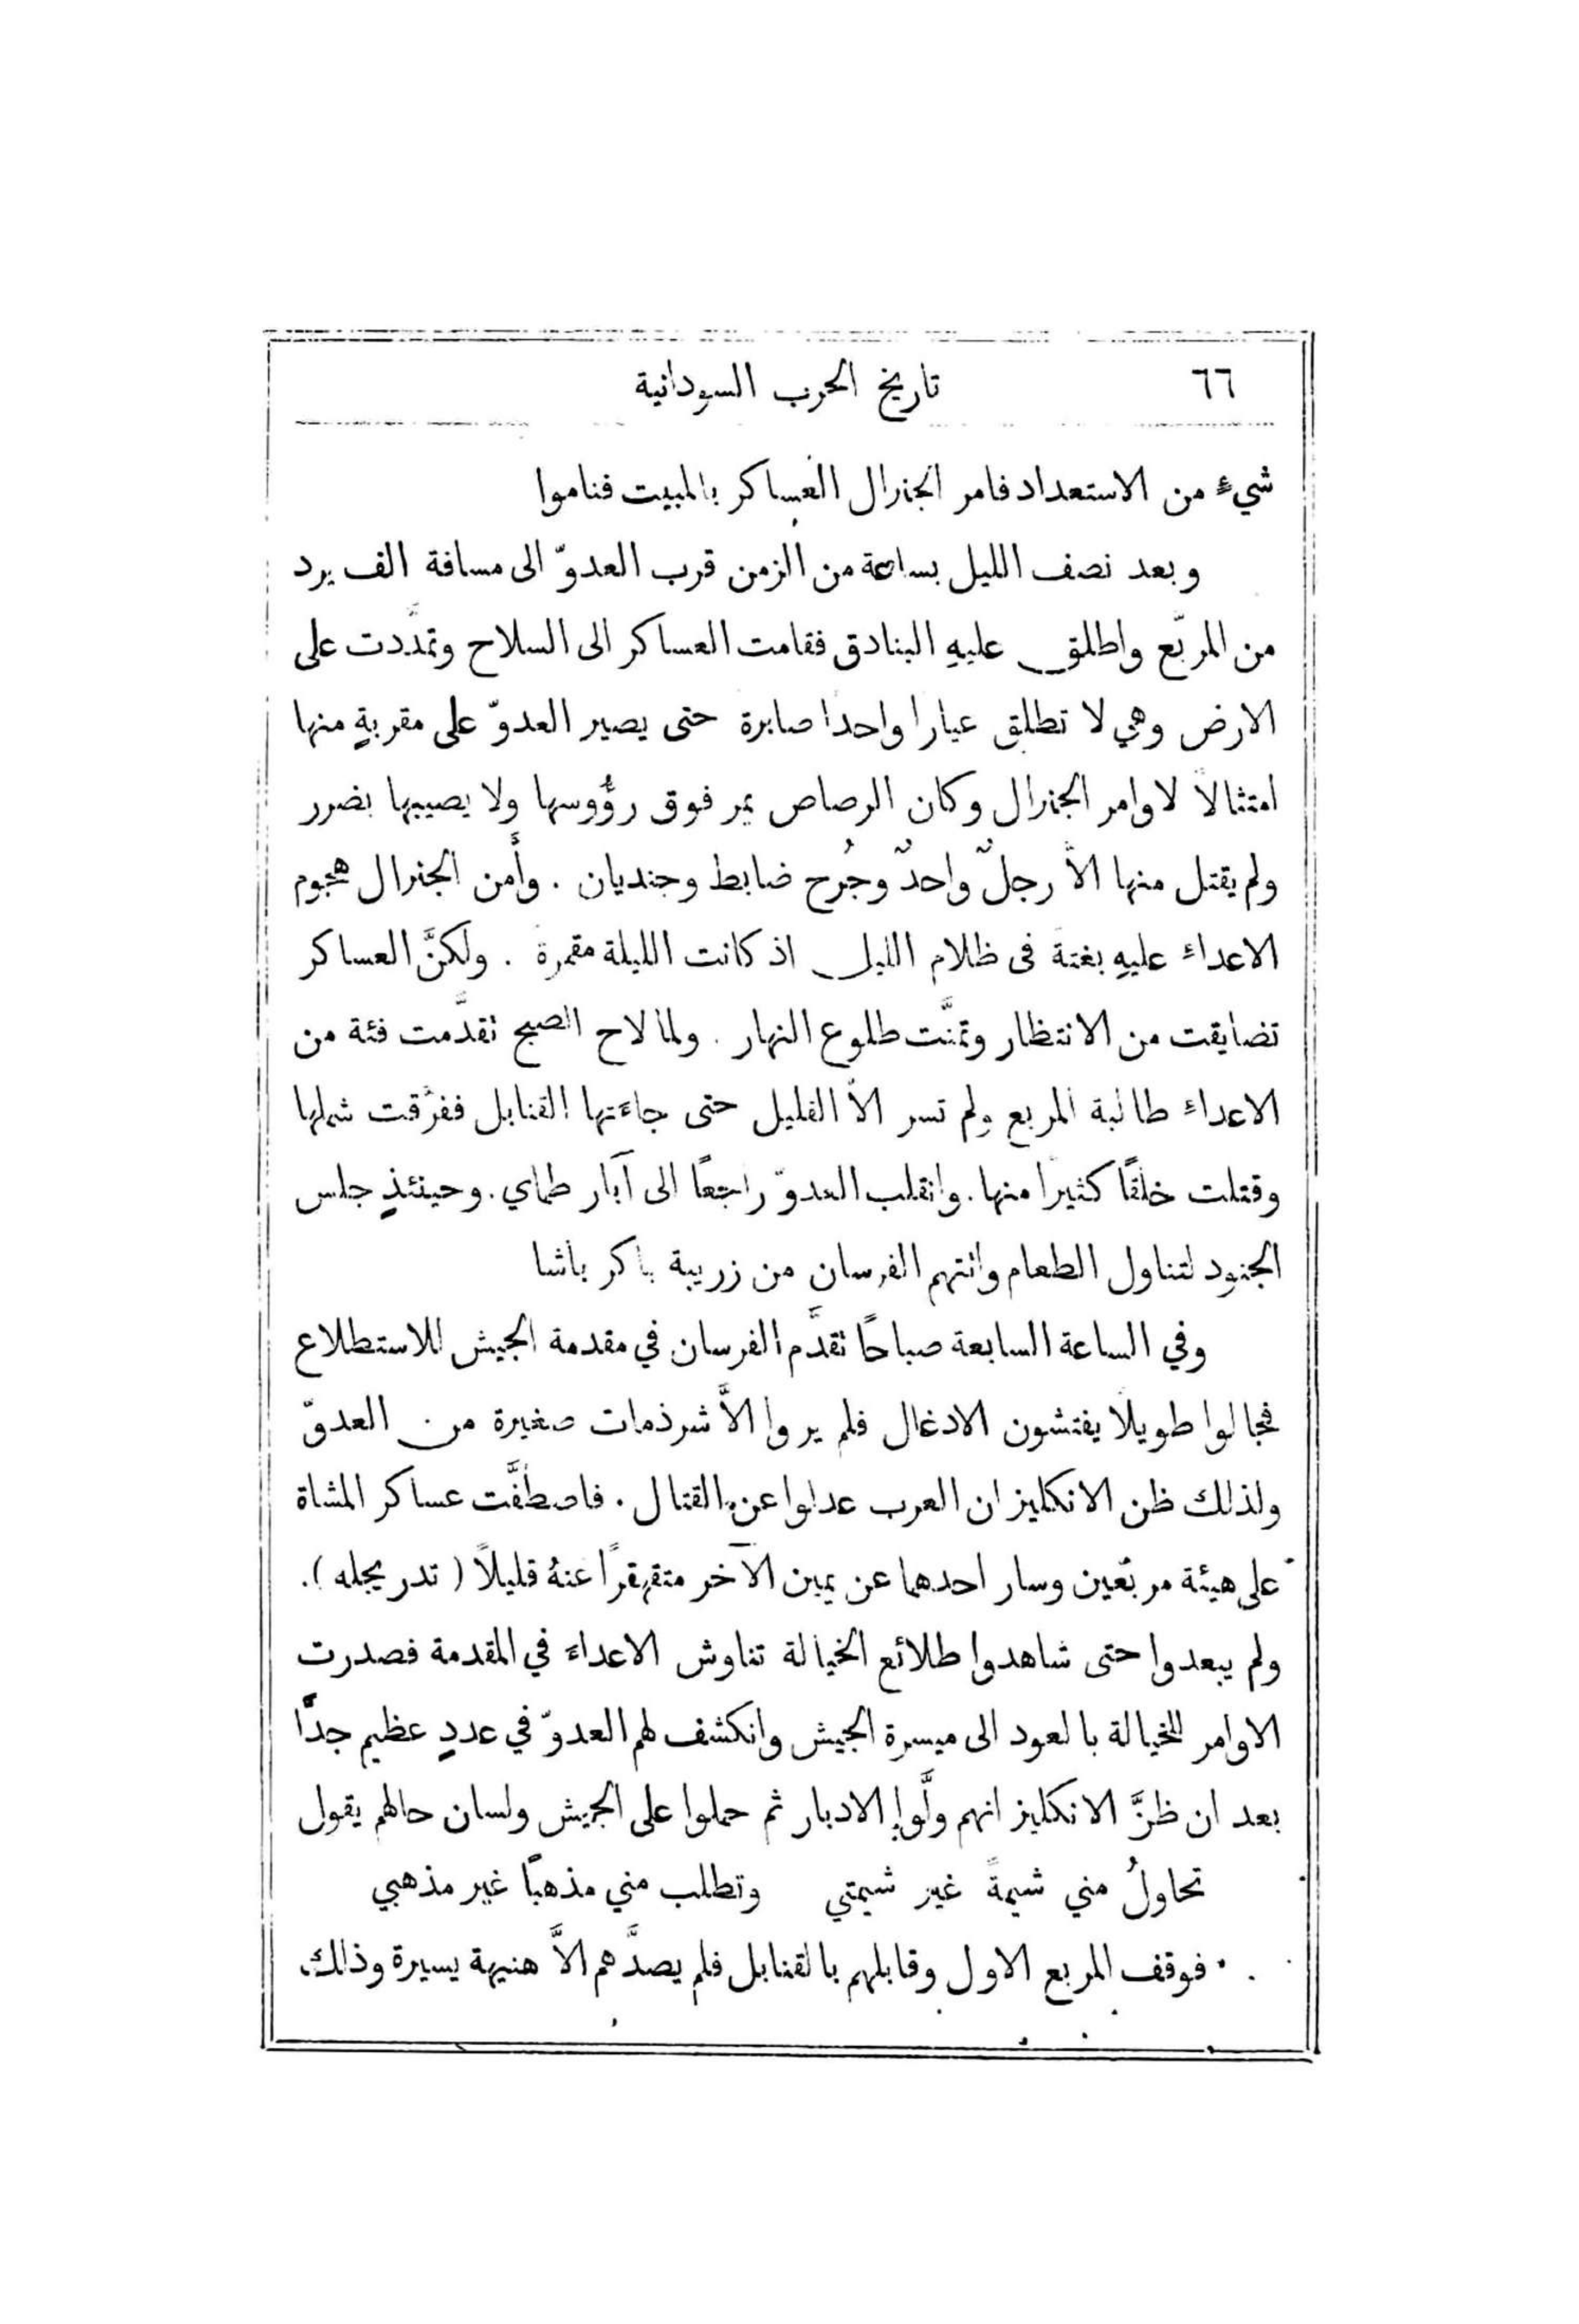 ٦٦ تاريخ الحرب السودانية
شيءٍ من الاستعداد فامر الجنرال العساكر بالمبيت فناموا
وبعد نصف الليل بساعة من الزمن قرب العدوّ الى مسافة الف يرد
من المربّع واطلق عليهِ البنادق فقامت العساكر الى السلاح وتمدَّدت على
الارض وهي لا تطلق عيارا واحدا صابرة حتى يصير العدوّ على مقربةٍ منها
امتثالاً لاوامر الجنرال وكان الرصاص يمر فوق رؤُوسها ولا يصيبها بضرر
ولم يقتل منها الاَّ رجلٌ واحدٌ وجُرح ضابط وجنديان . وأَمن الجنرال هجوم
الاعداءِ عليهِ بغتة فى ظلام الليل اذ كانت الليلة مقمرة . ولكنَّ العساكر
تضايقت من الانتظار وتمنَّت طلوع النهار . ولما لاح الصبح تقدَّمت فئة من
الاعداءِ طالبة المربع ولم تسر الاَّ القليل حتى جاءَتها القنابل ففرَّقت شملها
وقتلت خلقًا كثيرا منها . وانقلب العدوّ راجعًا الى آبار طماي . وحينئذٍ جلس
الجنود لتناول الطعام واتتهم الفرسان من زريبة باكر باشا
وفي الساعة السابعة صباحًا تقدَّم الفرسان في مقدمة الجيش للاستطلاع
فجالوا طويلاً يفتشون الادغال فلم يروا الاَّ شرذمات صغيرة من العدوّ
ولذلك ظن الانكليز ان العرب عدلوا عن القتال . فاصطفَّت عساكر المشاة
على هيئة مربّعين وسار احدهما عن يمين الآخر متقهقرًا عنهُ قليلاً ( تدريجله ) .
ولم يبعدوا حتى شاهدوا طلائع الخيالة تناوش الاعداءَ في المقدمة فصدرت
الاوامر للخيالة بالعود الى ميسرة الجيش وانكشف لهم العدوّ في عددٍ عظيم جدًّا
بعد ان ظنَّ الانكليز انهم ولَّوا الادبار ثم حملوا على الجيش ولسان حالهم يقول
تحاولُ مني شيمةً غير شيمتي وتطلب مني مذهبًا غير مذهبي
فوقف المربع الاول وقابلهم بالقنابل فلم يصدَّهم الاَّ هنيهة يسيرة وذلك